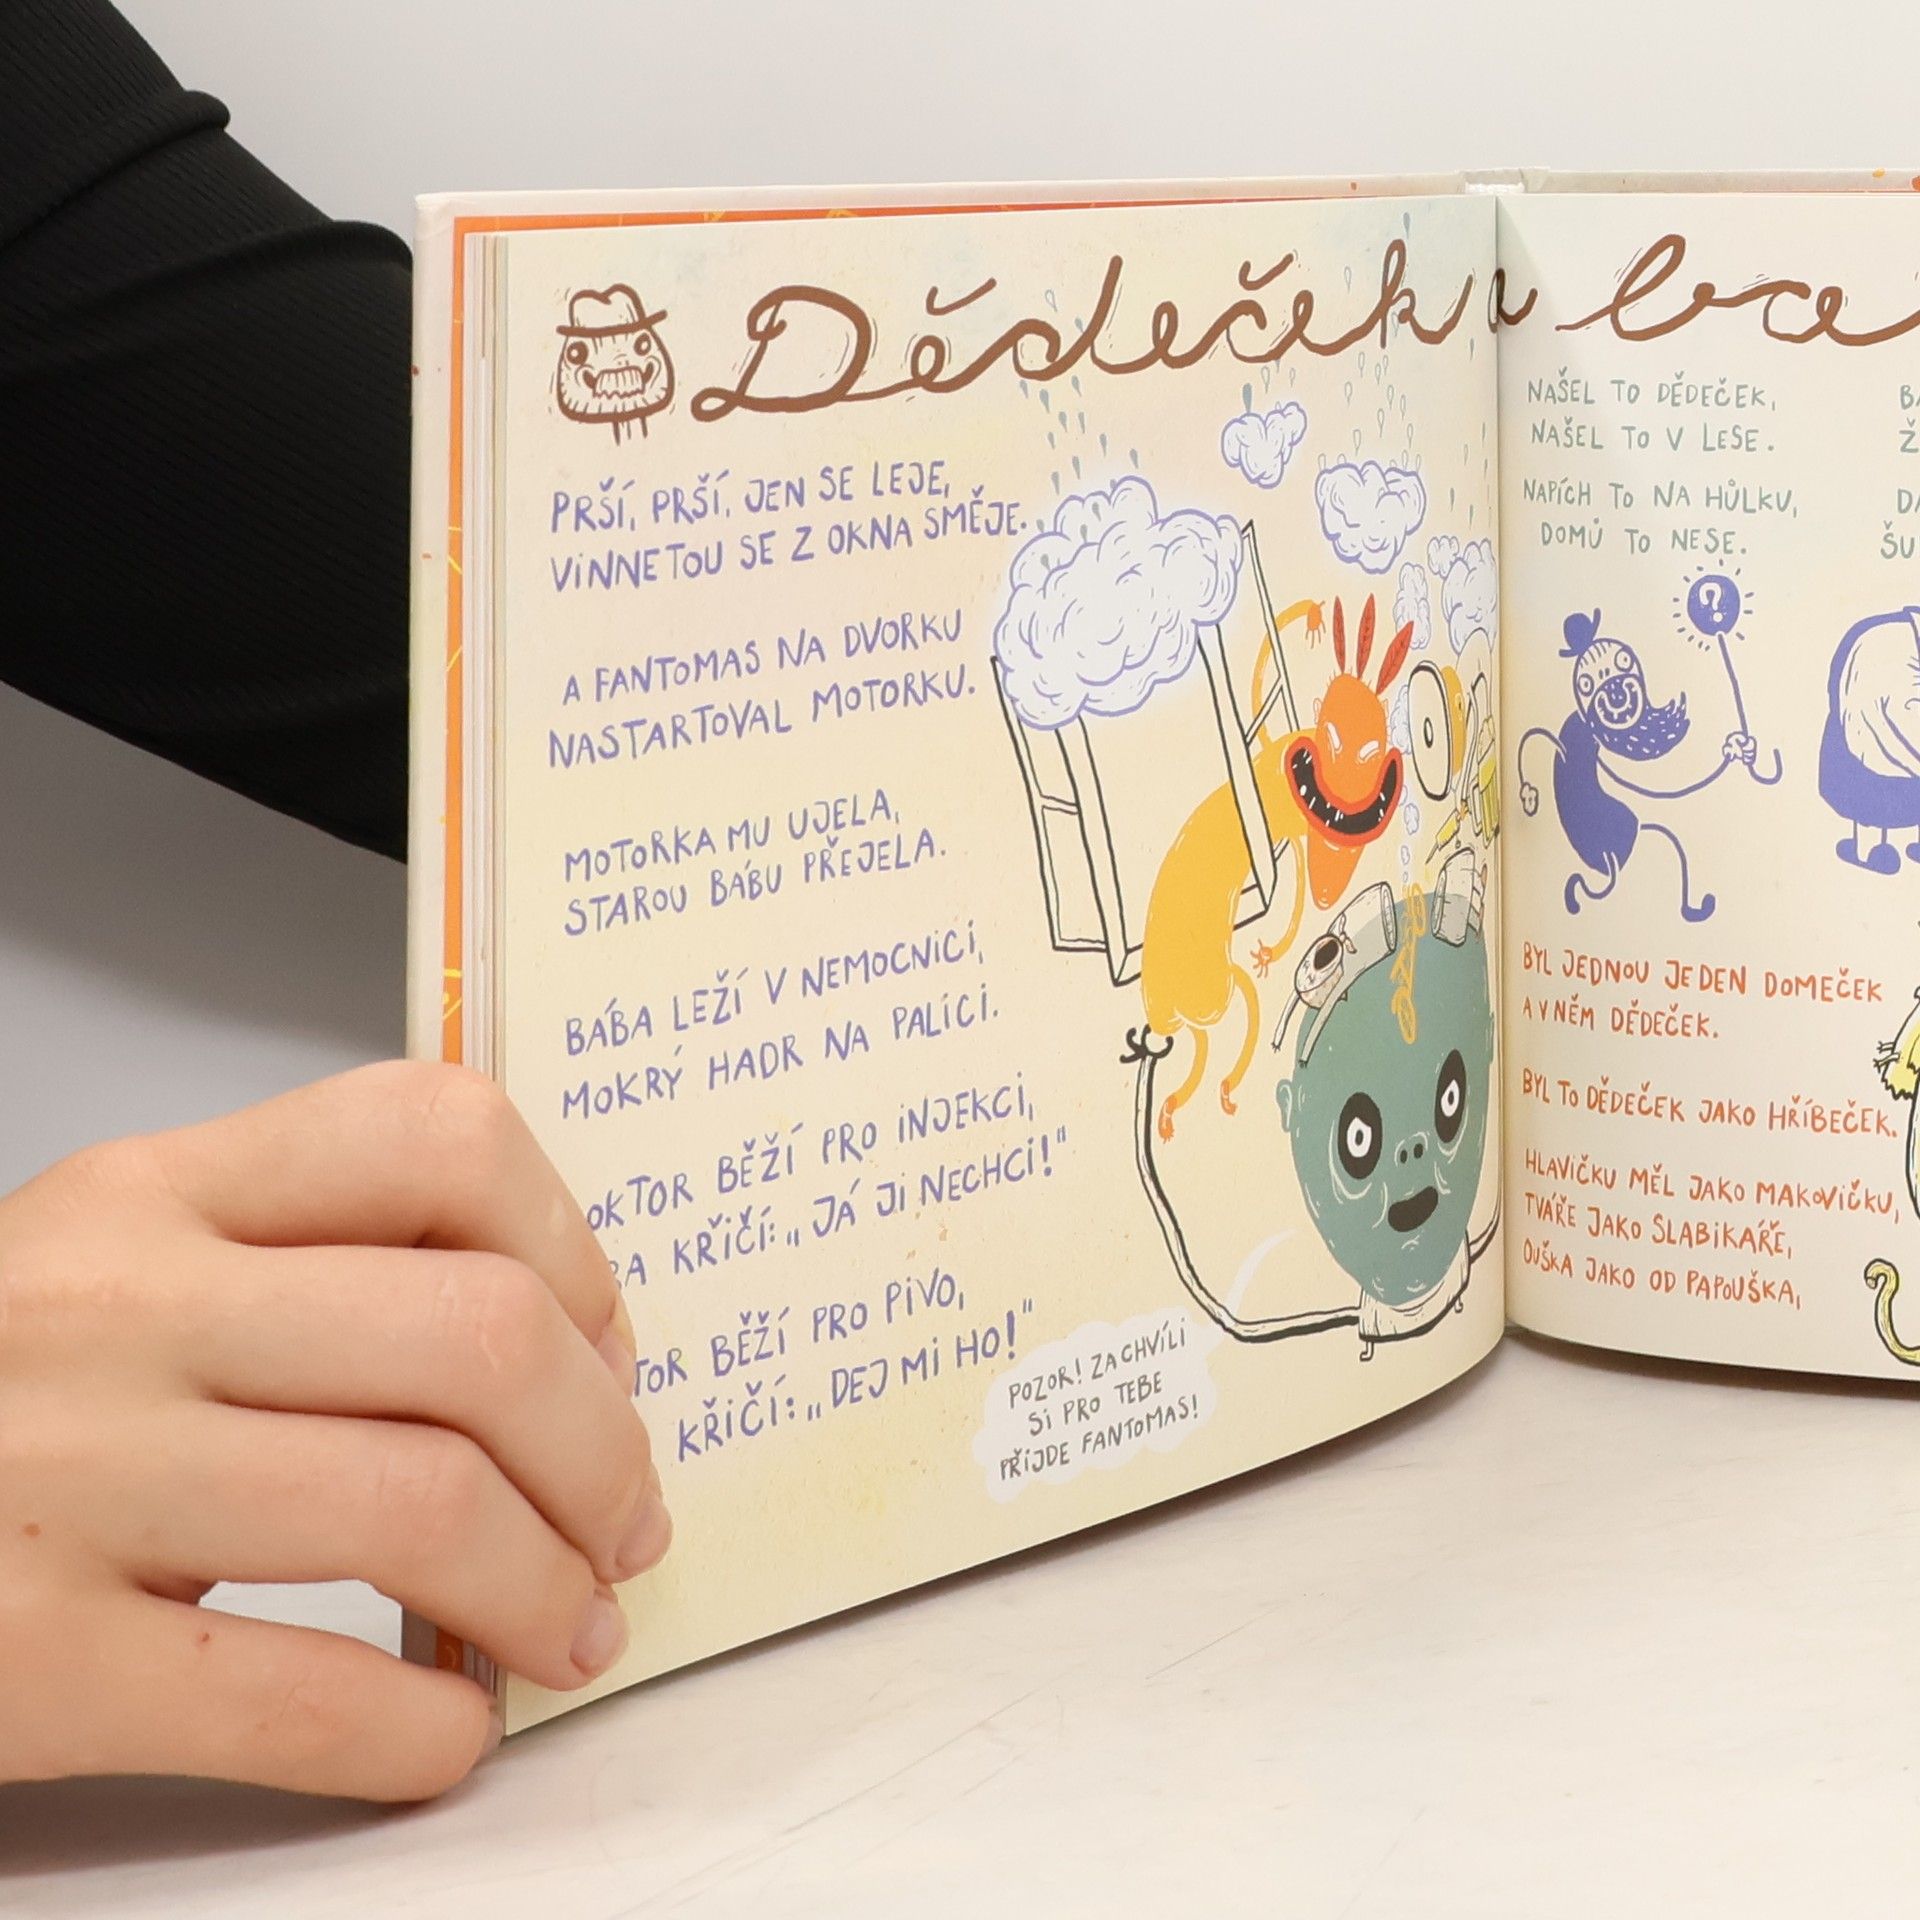 Dědeček a
PRŠÍ, PRŠÍ, JEN SE LEJE,
VINNETOU SE Z OKNA SMĚJE.
A FANTOMAS NA DVORKU
NASTARTOVAL MOTORKU.
MOTORKA MU UJELA,
STAROU BÁBU PŘEJELA.
BÁBA LEŽÍ V NEMOCNICI,
MOKRÝ HADR NA PALICI.
BĚŽÍ PRO INJEKCI,
KŘIČÍ: „JÁ JI NECHCI!"
BĚŽÍ PRO PIVO,
KŘIČÍ: „DEJ MI HO!"
POZOR! ZACHVÍLI
SI PRO TEBE
PŘIJDE FANTOMAS!
NAŠEL TO DĚDEČEK,
NAŠEL TO V LESE.
NAPÍCH TO NA HŮLKU,
DOMŮ TO NESE.
?
BYL JEDNOU JEDEN DOMEČEK
A V NĚM DĚDEČEK.
BYL TO DĚDEČEK JAKO HŘÍBEČEK.
HLAVIČKU MĚL JAKO MAKOVIČKU,
TVÁŘE JAKO SLABIKÁŘE,
OUŠKA JAKO OD PAPOUŠKA,